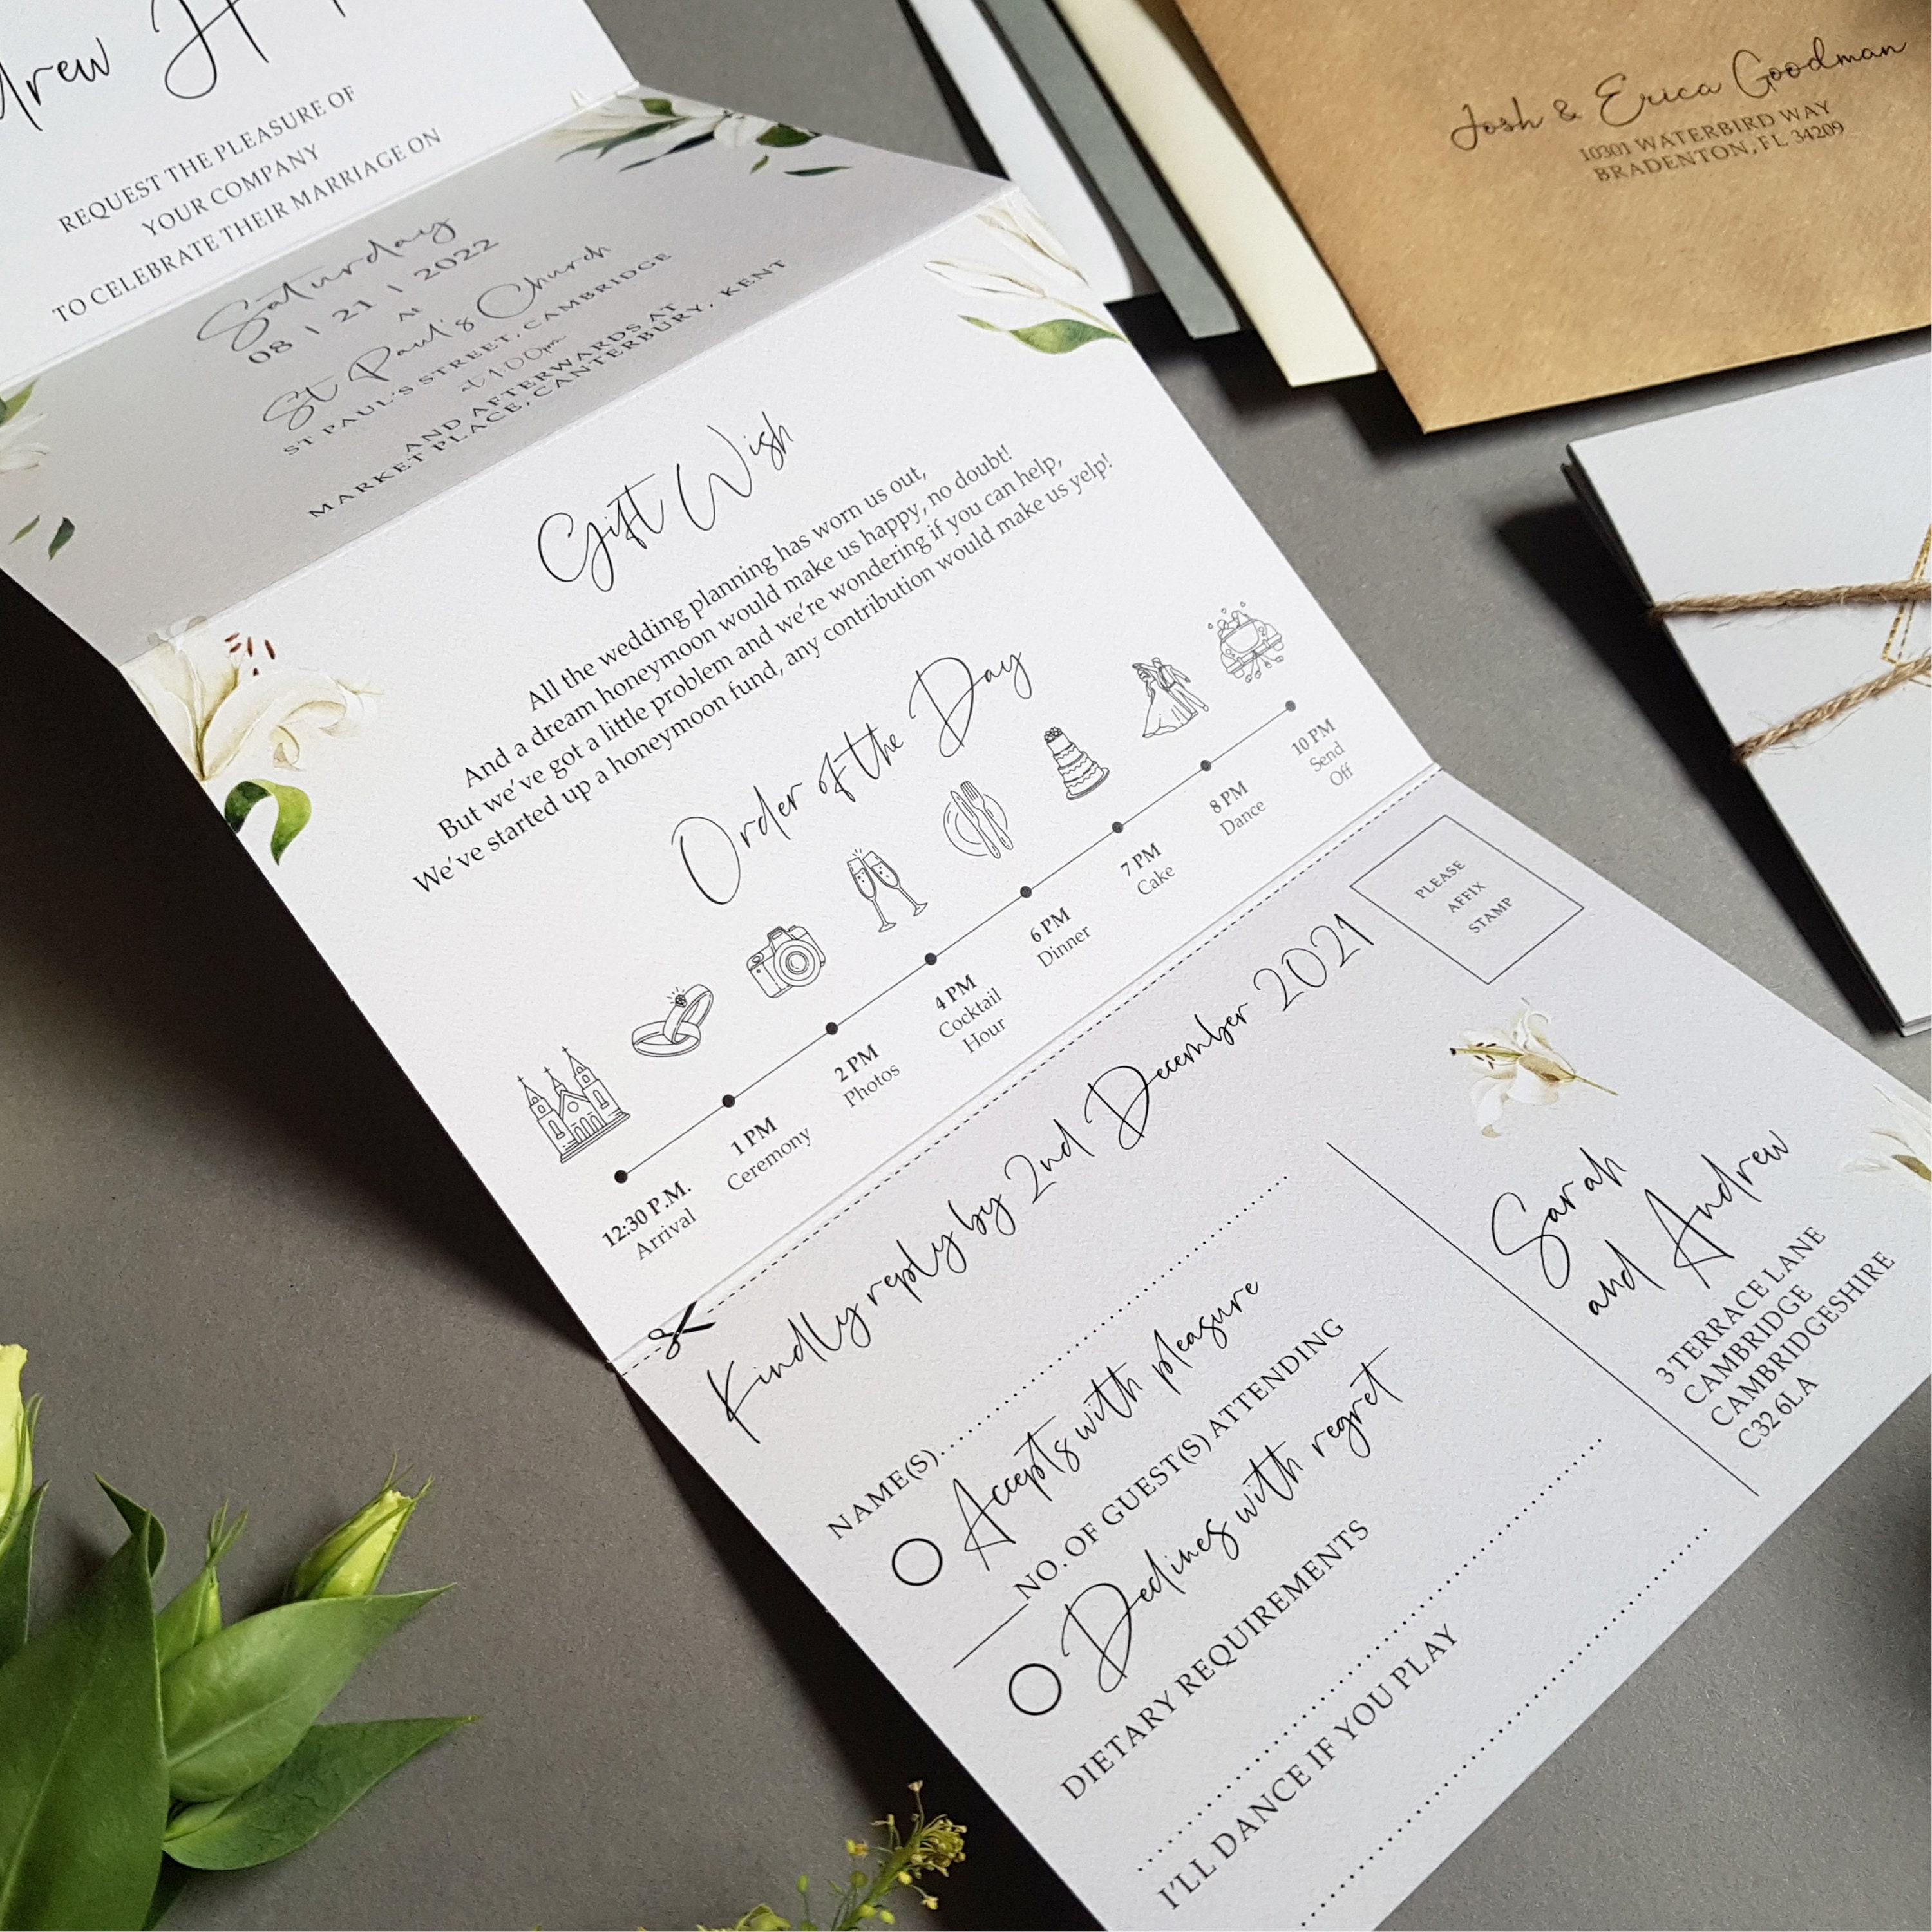 REQUEST THE PLEASURE OF
YOUR COMPANY
TO CELEBRATE THEIR MARRIAGE ON
Saturday
08 | 21 | 2022
At
St Paul's Church
ST PAUL'S STREET, CAMBRIDGE
at 1:00pm
AND AFTERWARDS AT
MARKET PLACE, CANTERBURY, KENT
Gift Wish
All the wedding planning has worn us out,
And a dream honeymoon would make us happy, no doubt!
But we've got a little problem and we're wondering if you can help,
We've started up a honeymoon fund, any contribution would make us yelp!
Order of the Day
12:30 P.M.
Arrival
1 PM
Ceremony
2 PM
Photos
4 PM
Cocktail
Hour
6 PM
Dinner
7 PM
Cake
8 PM
Dance
10 PM
Send
Off
Kindly reply by 2nd December 2021
NAME(S)
Accepts with pleasure
NO. OF GUEST(S) ATTENDING
Declines with regret
DIETARY REQUIREMENTS
I'LL DANCE IF YOU PLAY
PLEASE
AFFIX
STAMP
Sarah
and Andrew
3 TERRACE LANE
CAMBRIDGE
CAMBRIDGESHIRE
C32 6LA
Josh & Erica Goodman
10301 WATERBIRD WAY
BRADENTON, FL 34209